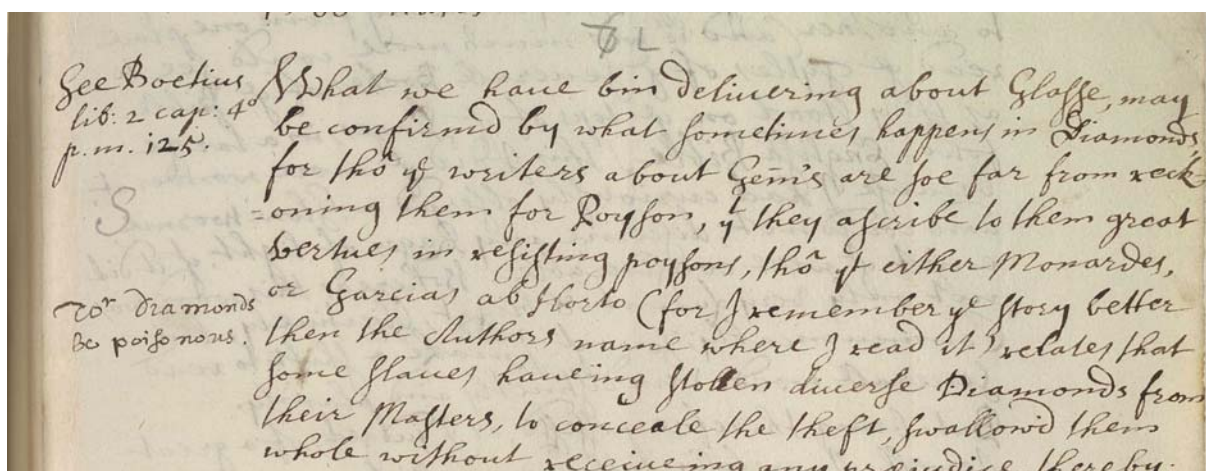 See Boetius
lib: 2 cap: 4º
p. m. 125.
S
Whr Diamonds
be poisonous.
What we have bin delivering about Glasse, may
be confirmd by what sometimes happens in Diamonds,
for thô yᵉ writers about Gem̄s are soe far from reck-
=oning them for Poyson, yᵗ they ascribe to them great
vertues in resisting poysons, thô yᵗ either Monardes,
or Garcias ab Horto (for I remember yᵉ story better
then the Authors name where I read it) relates that
some slaves haveing stollen diverse Diamonds from
their Masters, to conceale the theft, swallowd them
whole without receiveing any prejudice thereby.